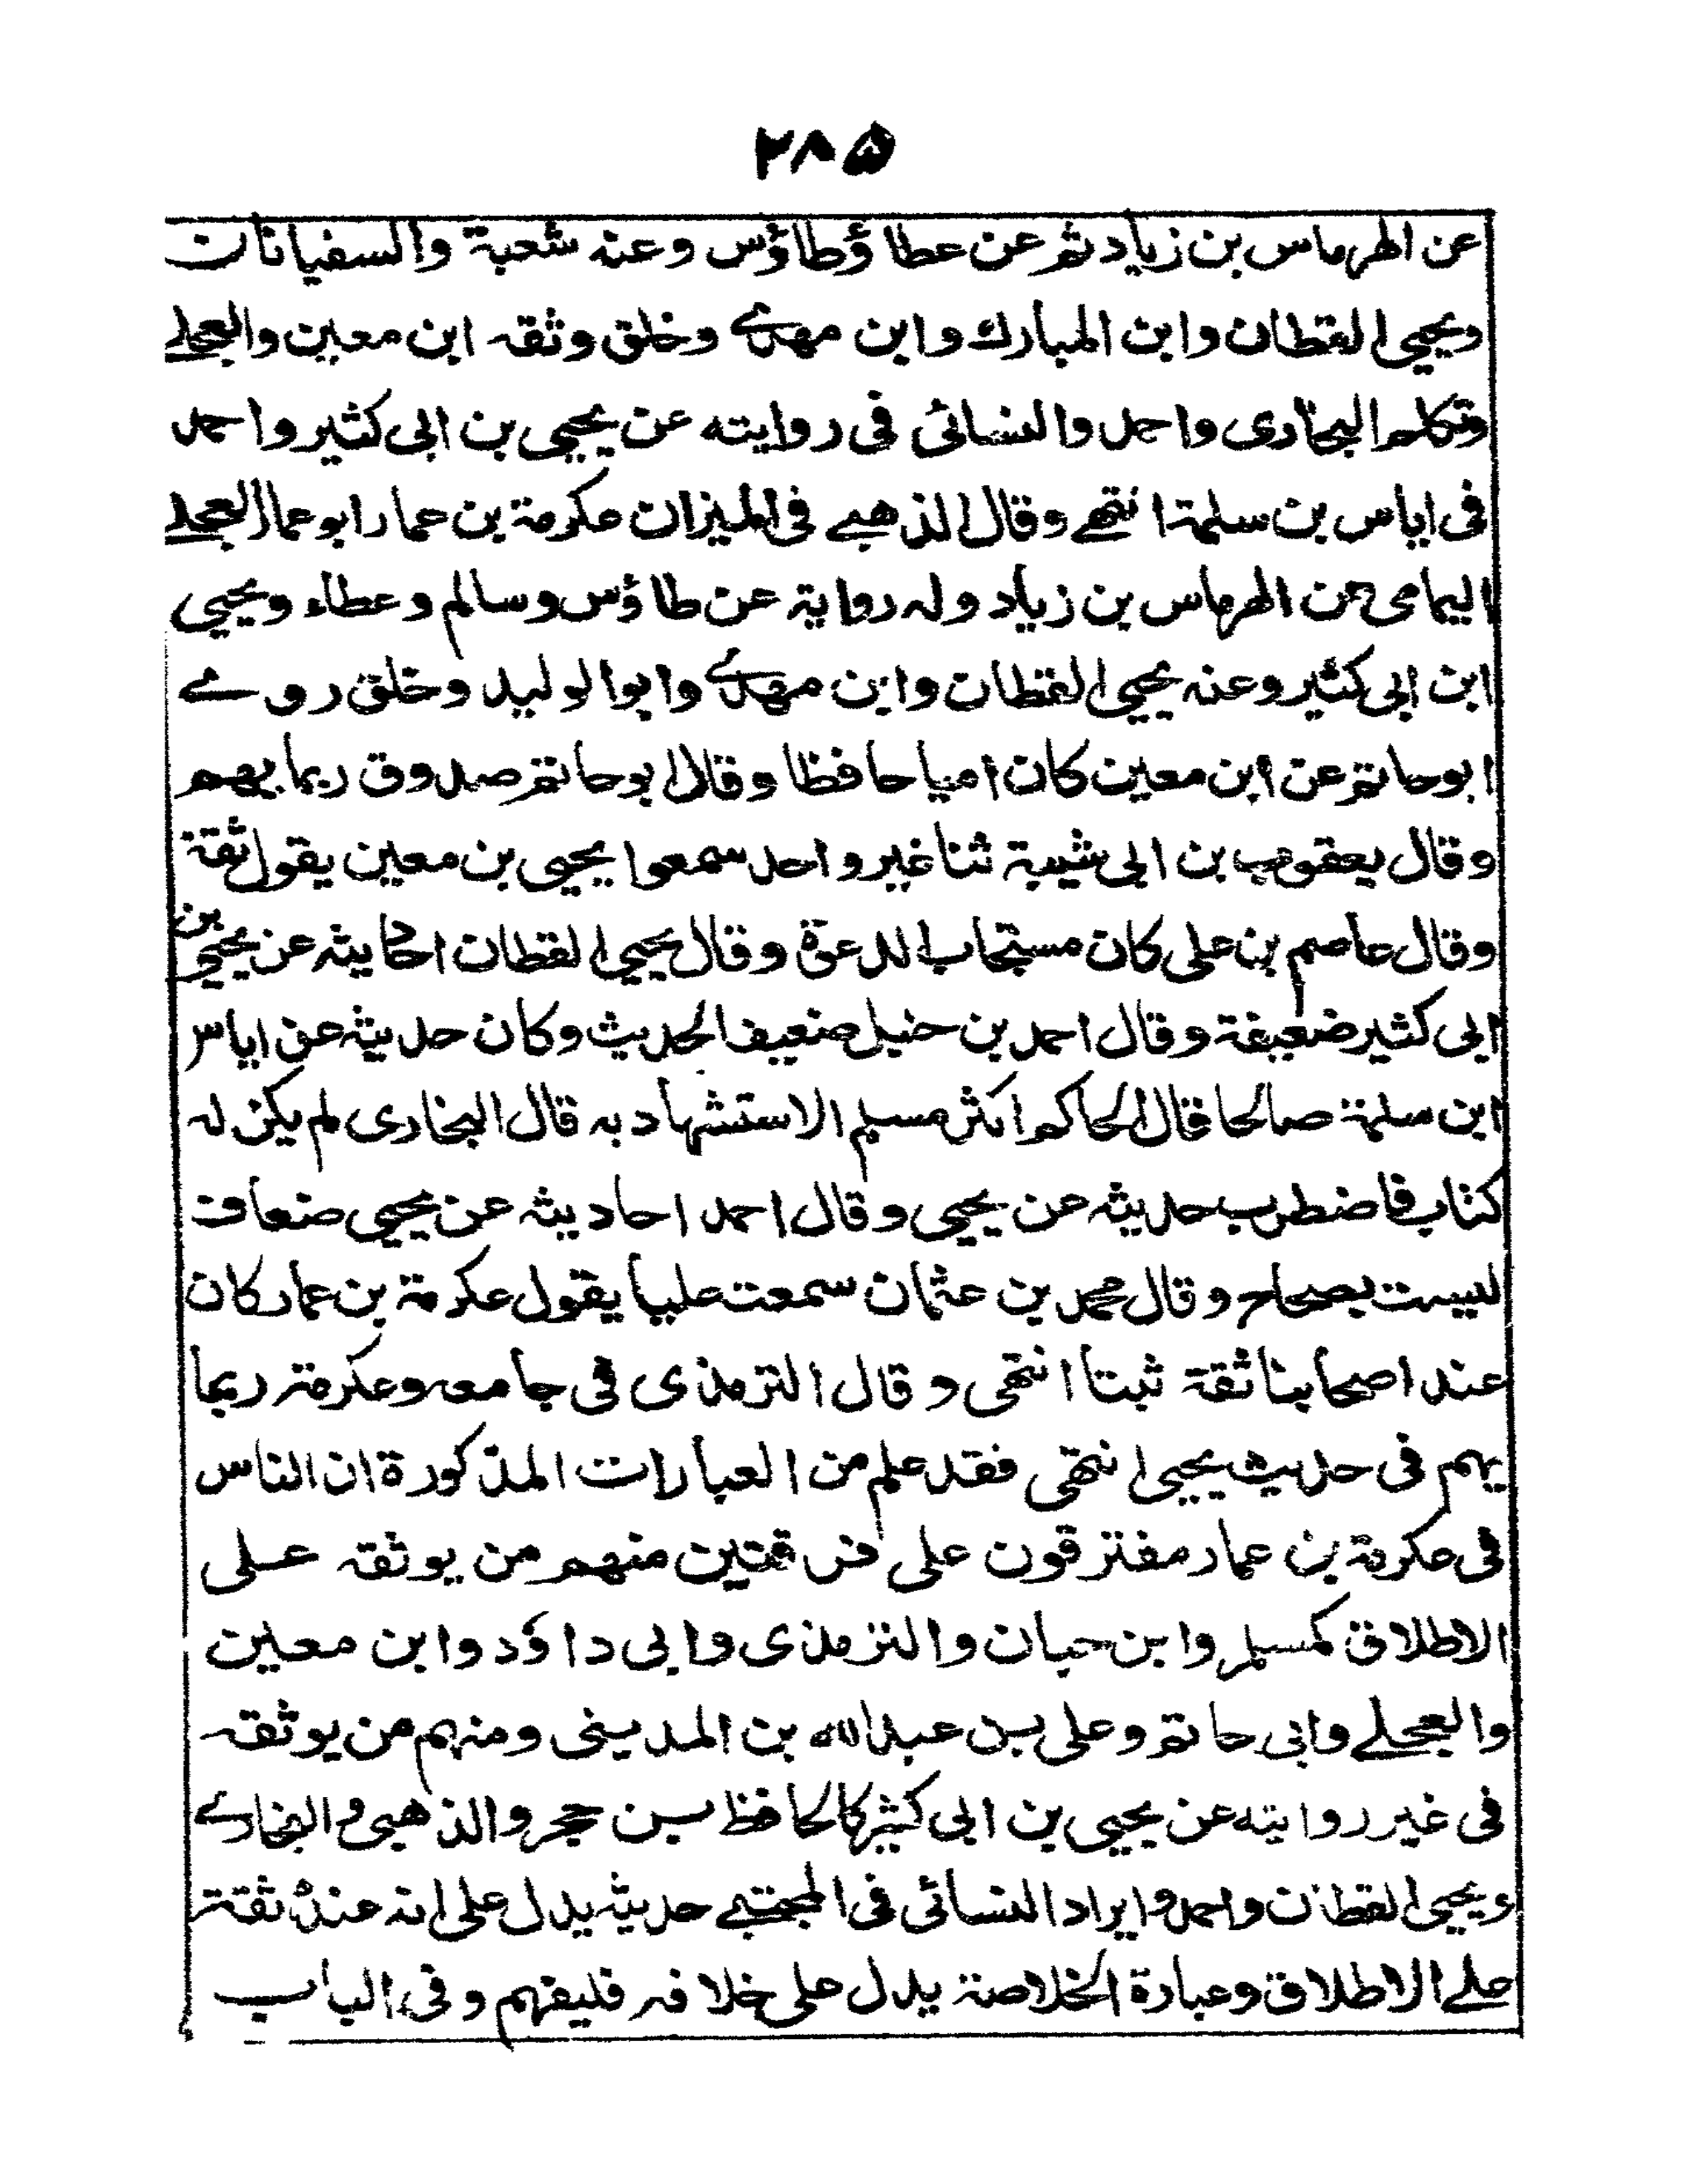 ۲۸۵
عن الهرماس بن زياد ثم عن عطاؤ طاؤس وعنه شعبة والسفيانان
ويحيى القطان وابن المبارك وابن مهدي وخلق وثقه ابن معين والعجلي
وتكلم البخارى واحمد والنسائى فى روايته عن يحيى بن ابى كثير واحمد
فى اياس بن سلمة انتهى وقال الذهبي فى الميزان عكرمة بن عمار ابو عمار العجلي
اليمامى عن الهرماس بن زياد وله رواية عن طاؤس وسالم وعطاء ويحيى
ابن ابى كثير وعنه يحيى القطان وابن مهدي وابو الوليد وخلق روى
ابو حاتم عن ابن معين كان اميا حافظا وقال ابو حاتم صدوق ربما يهم
وقال يعقوب بن ابى شيبة ثنا غير واحد سمعوا يحيى بن معين يقول ثقة
وقال عاصم بن على كان مستجاب الدعوة وقال يحيى القطان احاديثه عن يحيى بن
ابى كثير ضعيفة وقال احمد بن حنبل ضعيف الحديث وكان حديثه عن اياس
ابن سلمة صالحا قال الحاكم اكثر مسلم الاستشهاد به قال البخارى لم يكن له
كتاب فاضطرب حديثه عن يحيى وقال احمد احاديثه عن يحيى ضعاف
ليست بصحاح وقال محمد بن عثمان سمعت عليا يقول عكرمة بن عمار كان
عند اصحابنا ثقة ثبتا انتهى وقال الترمذى فى جامعه وعكرمة ربما
يهم فى حديث يحيى انتهى فقد علم من العبارات المذكورة ان الناس
فى عكرمة بن عمار مفترقون على فرقتين منهم من يوثقه على
الاطلاق كمسلم وابن حبان والترمذى وابى داؤد وابن معين
والعجلي وابى حاتم وعلى بن عبدالله بن المدينى ومنهم من يوثقه
فى غير روايته عن يحيى بن ابى كثير كالحافظ بن حجر والذهبى والبخاري
ويحيى القطان واحمد وايراد النسائى فى المجتبى حديثه يدل على انه عنده ثقة
على الاطلاق وعبارة الخلاصة يدل على خلافه فليفهم وفى الباب